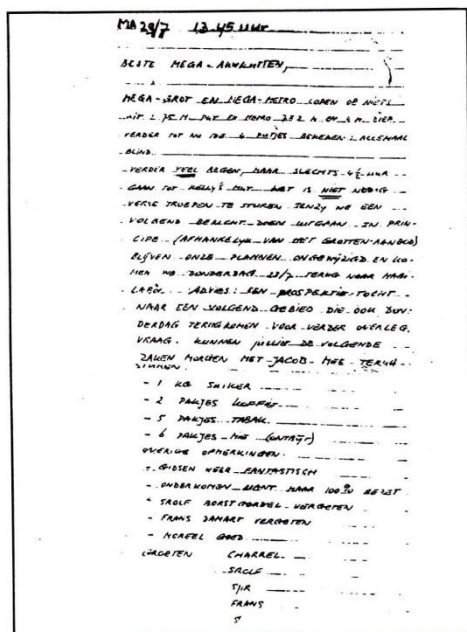 MA 29/7 13.45 UUR
BESTE MEGA-
MEGA-GROT EN MEGA-METRO LOPEN OP NIETS
UIT. 75 M PUT EN METRO 252 M EN 4 M DIEP.
VERDER TOT NU TOE 6 PUTJES BEKEKEN: ALLEMAAL
BLIND.
VERDER VEEL REGEN, MAAR SLECHTS 4½ UUR
GAAN TOT KELLY'S HUT. HET IS NIET NODIG
VERSE TROEPEN TE STUREN TENZY WE EEN
VOLGEND BERICHT DOEN UITGAAN. IN PRIN-
CIPE (AFHANKELYK VAN HET GROTTEN-AANBOD)
BLIJVEN ONZE PLANNEN ONGEWIJZIGD EN KO-
MEN WE DONDERDAG TERUG NAAR
ADVIES: EEN PROSPEKTIE-TOCHT
NAAR EEN VOLGEND GEBIED DIE OOK DON-
DERDAG TERUGKOMEN VOOR VERDER OVERLEG.
VRAAG: KUNNEN JULLIE DE VOLGENDE
ZAKEN MORGEN MET JACOB MEE TERUG
STUREN.
- 1 KG SUIKER
- 2 PAKJES KOFFIE
- 5 PAKJES TABAK
- 6 PAKJES MIE (ONTBIJT)
OVERIGE OPMERKINGEN.
- GIDSEN WEER FANTASTISCH
- ONDERKOMEN MAAR 100% BEZET
- SROLF BORSTGORDEL VERGETEN
- FRANS DAMART VERGETEN
- MOREEL GOED
GROETEN CHARREL
SROLF
SJIR
FRANS